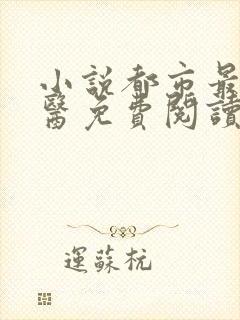 小説都市最
醫免費閱讀
運蘇杭